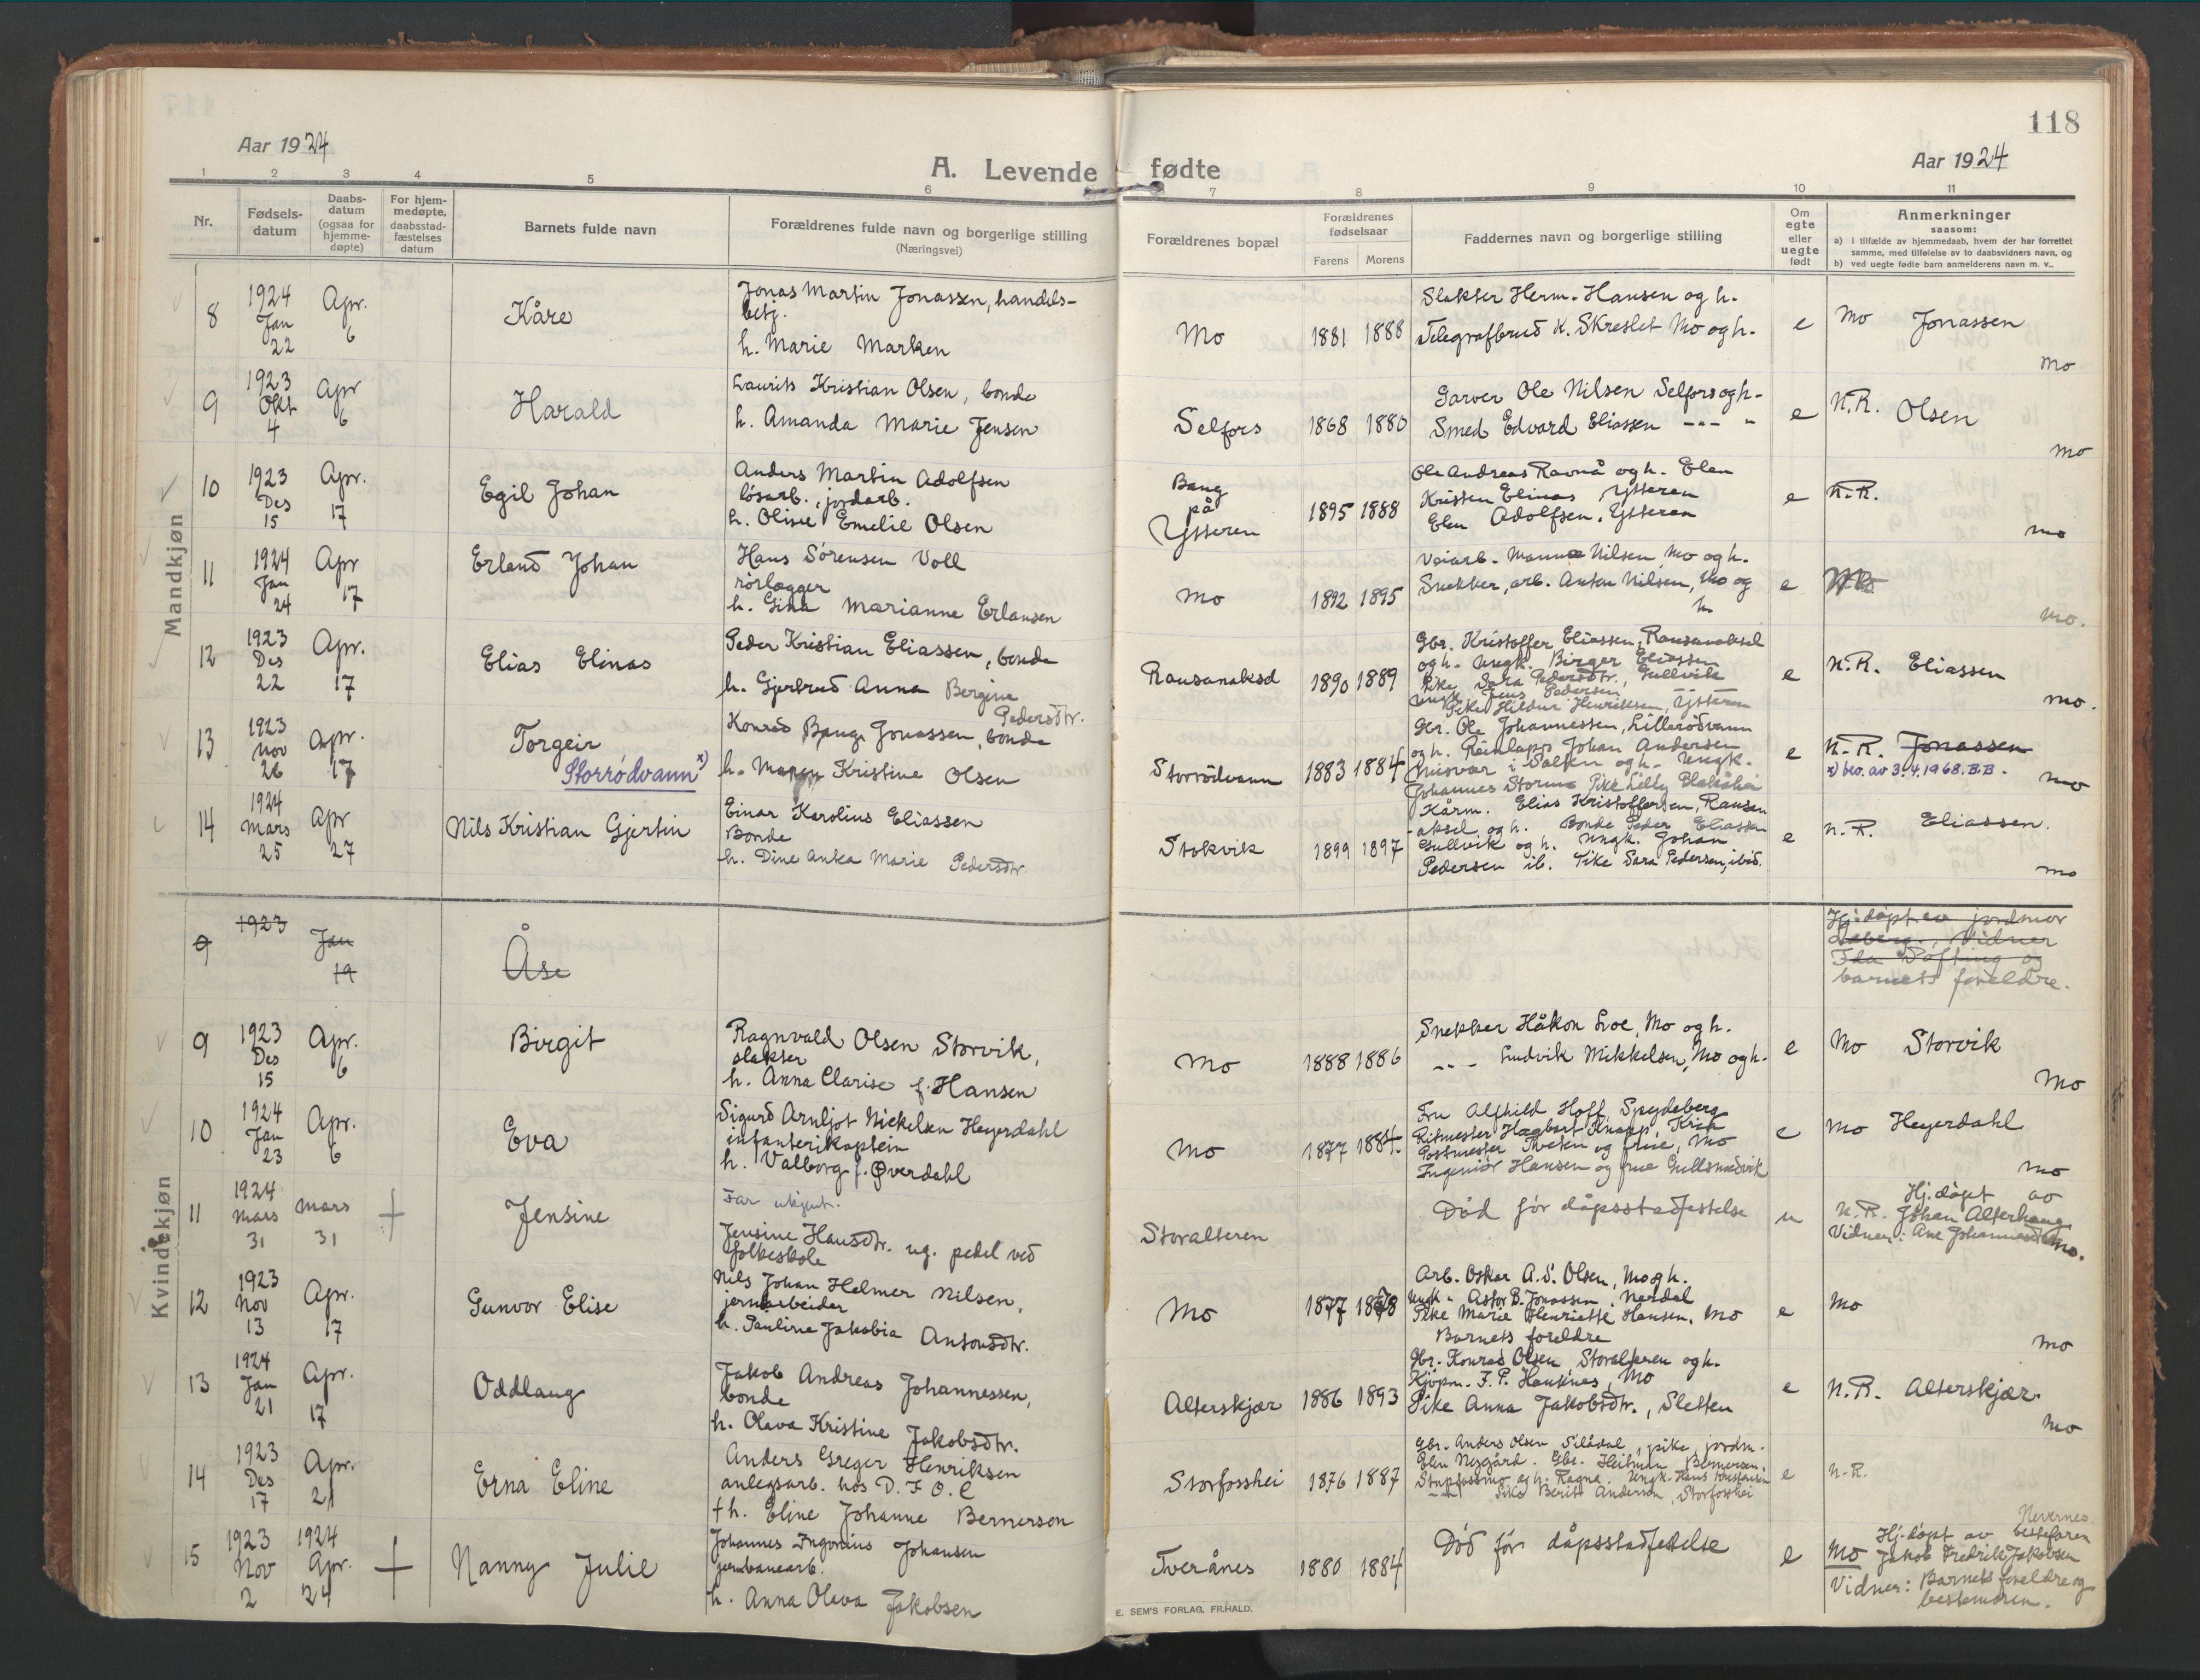 118
Aar 1924
Aar 1924
A. Levende fødte
1 2 3 4 5 6 7 8 9 10 11
Nr.
Fødsels-
datum
Daabs-
datum
(ogsaa for
hjemme-
døpte)
For hjem-
medøpte,
daabsstad-
fæstelses
datum
Barnets fulde navn
Forældrenes fulde navn og borgerlige stilling
(Næringsvei)
Forældrenes bopæl
Forældrenes
fødselsaar
Farens Morens
Faddernes navn og borgerlige stilling
Om
egte
eller
uegte
født
Anmerkninger
saasom:
a) i tilfælde av hjemmedaab, hvem der har forrettet
samme, med tilføielse av to daabsvidners navn, og
b) ved uegte fødte barn anmelderens navn m. v..
Mandkjøn
8
1924
Jan
22
Apr.
6
Kåre
Jonas Martin Jonassen, handels-
betj.
h. Marie Marken
Mo
1881 1888
Slakter Herm. Hansen og h.
Telegrafbud K. Skreslet Mo og h.
e
Mo Jonassen
Mo
9
1923
Okt
4
Apr
6
Harald
Laurits Kristian Olsen, bonde
h. Amanda Marie Jensen
Selfors
1868 1880
Garver Ole Nilsen Selfors og h.
Smed Edvard Eliassen -"- "
e
N.R. Olsen
Mo
10
1923
Des
15
Apr.
17
Egil Johan
Anders Martin Adolfsen
løsarb., jordarb.
h. Oline Emelie Olsen
Bang
på
Ytteren
1895 1888
Ole Andreas Ravnå og h. Elen
Kristen Elinas, Ytteren
Elen Adolfsen, Ytteren
e
N.R.
Mo
11
1924
Jan
24
Apr
17
Erland Johan
Hans Sørensen Voll
rørlægger
h. Gina Marianne Erlansen
Mo
1892 1895
Veiarb. Nilsen, Mo og h.
Snekker, arb. Anton Nilsen, Mo og
h
e
Mo.
12
1923
Des
22
Apr.
17
Elias Elinas
Peder Kristian Eliassen, bonde
h. Gjertrud Anna Bergine
Pedersdtr.
Ransanaksel
1890 1889
Gbr. Kristoffer Eliassen, Ransanaksel
og h. Ungk. Birger Eliassen
Pike Sara Pedersdtr, Gullvik
Ungk. Jens Pedersen
Pike Hildur Henriksen, Ytteren
e
N.R. Eliassen
Mo.
13
1923
Nov
26
Apr.
17
Torgeir
Storrødvann x)
Konrad Bang Jonassen, bonde
h. Maren Kristine Olsen
Storrødvann
1883 1884
Gbr. Ole Johannessen, Lillerødvann
og h. Reinlapp Johan Andersen
Misvær i Salten og h. Ungk.
Johannes Storm Pike Lilly
e
N.R. Jonassen
x) bev. av 3.4.1968. B.B.
Mo
14
1924
Mars
25
Apr
27
Nils Kristian Gjertin
Einar Karolius Eliassen
Bonde
h. Dine Anka Marie Pedersdtr.
Stokvik
1899 1897
Kårm. Elias Kristoffersen, Ransan
aksel og h. Bonde Peder Eliassen
Gullvik og h. Ungk. Johan
Pedersen ib. Pike Sara Pedersen, ibid.
e
N.R. Eliassen.
Mo
Kvindekjøn
9
1923
Jan
19
Åse
Hj.døpt av jordmor
Vidner
og
barnets foreldre.
9
1923
Des
15
Apr.
6
Birgit
Ragnvald Olsen Storvik,
slakter
h. Anna Clarise f. Hansen
Mo
1888 1886
Snekker Håkon Svoe, Mo og h.
-"- Ludvik Mikkelsen, Mo og h.
e
Mo Storvik
Mo
10
1924
Jan
23
Apr.
6
Eva
Sigurd Arnljot Mickelsen Heyerdahl
infanterikaptein
h. Valborg f. Øverdahl
Mo
1877 1884.
Fru Alfhild Hoff Spydeberg
Ritmester Hagbart Knapp,
Postmester Tveten og frue, Mo
Ingeniør Hansen og frue Gullsmedvik
e
Mo Heyerdahl
Mo
11
1924
Mars
31
Mars
31
+
Jensine
Far ukjent.
Jensine Hansdtr. ug. pedel ved
folkeskole
Storalteren
Død før dåpsstadfestelse
u
Hj.døpt av
N.R. Johan Alterhaug
Vidner: Ane Johannesdtr
Mo.
12
1923
Nov
13
Apr.
17
Gunvor Elise
Nils Johan Helmer Nilsen,
jernarbeider
h. Pauline Jakobia Antonsdtr.
Mo
1877 1878
Arb. Oskar A.S. Olsen, Mo og h.
Ungk. Astor B. Jonassen, Nerdal
Pike Marie Henriette Hansen, Mo
Barnets foreldre
e
Mo
Mo
13
1924
Jan
21
Apr.
17
Oddlaug
Jakob Andreas Johannessen,
bonde
h. Olava Kristine Jakobsdtr.
Alterskjær
1886 1893
Gbr. Konrad Olsen, Storalteren og h.
Kjøpm. F. P. Hauknes, Mo
Pike Anna Jakobsdtr., Sletten
e
N.R. Alterskjær.
Mo
14
1923
Des
17
Apr.
21
Erna Eline
Anders Greger Henriksen
anlegsarb. hos D. F. O. C
+ h. Eline Johanne Bernersen
Storfosshei
1876 1887
Gbr. Anders Olsen, Silådal, pike, jordm.
Elen Nygård. Gbr. Heitman Bernersen,
Stupfossmo og h. Ragna. Ungk. Hans Kristiansen
-"- Pike Berit Andersen, Storfosshei
e
N.R.
15
1923
Nov
2
1924
Apr.
24
+
Nanny Julie
Johannes Ingonius Johansen
jernbanearb.
h. Anna Olava Jakobsen
Tverånes
1880 1884
Død før dåpsstadfestelse
e
Nevernes
Hj.døpt av bestefaren
Mo Jakob Fredrik Jakobsen
Vidner: Barnets foreldre og
bestemoren.
E. SEM'S FORLAG, FR.HALD.